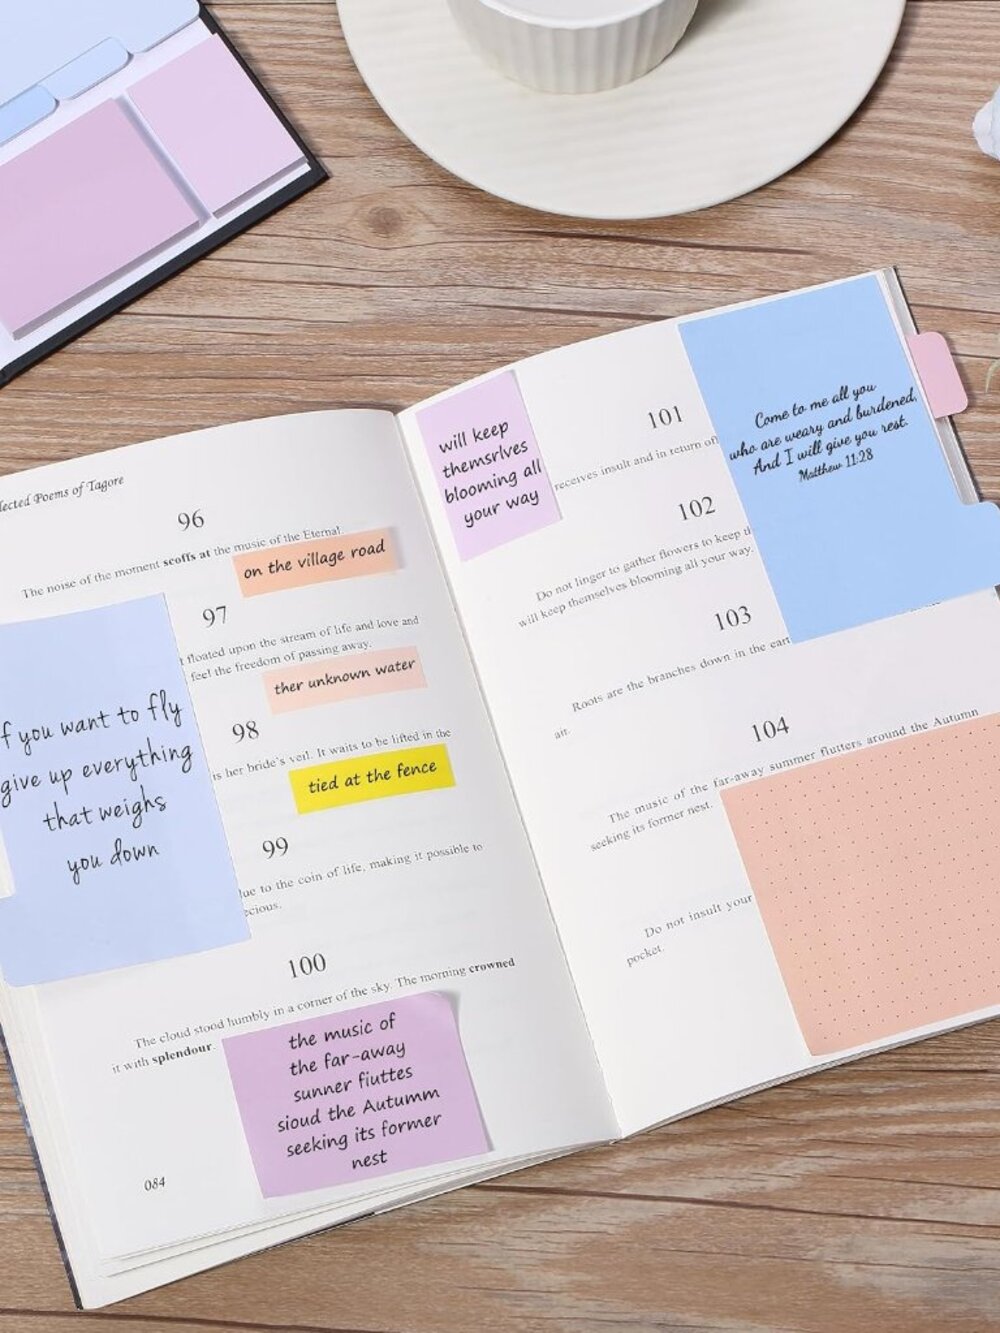 lected Poems of Tagore
96
The noise of the moment scoffs at the music of the Eternal.
on the village road
97
floated upon the stream of life and love and
feel the freedom of passing away.
ther unknown water
98
is her bride's veil. It waits to be lifted in the
tied at the fence
99
lue to the coin of life, making it possible to
cious.
100
The cloud stood humbly in a corner of the sky. The morning crowned
it with splendour.
f you want to fly
give up everything
that weighs
you down
the music of
the far-away
sunner fiuttes
sioud the Autumm
seeking its former
nest
084
will keep
themsrlves
blooming all
your way
101
receives insult and in return off
102
Do not linger to gather flowers to keep
will keep themselves blooming all your way.
103
Roots are the branches down in the eart
air.
104
The music of the far-away summer flutters around the Autumn
seeking its former nest.
Do not insult your
pocket.
Come to me all you
who are weary and burdened,
And I will give you rest.
Matthew 11:28